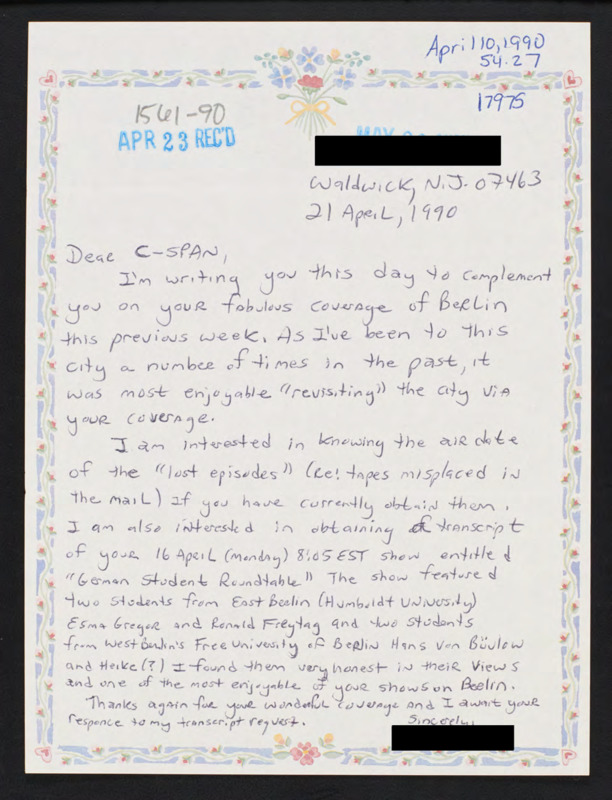 April 10, 1990
54.27
17975
1561-90
APR 23 REC'D
Waldwick, N.J. 07463
21 April, 1990
Dear C-SPAN,
I'm writing you this day to complement
you on your fabulous coverage of Berlin
this previous week. As I've been to this
city a number of times in the past, it
was most enjoyable "revisiting" the city via
your coverage.
I am interested in knowing the air date
of the "lost episodes" (Re: tapes misplaced in
the mail) If you have currently obtain them.
I am also interested in obtaining a transcript
of your 16 April (Monday) 8:05 EST show entitled
"German Student Roundtable" The show featured
two students from East Berlin (Humboldt University)
Esma Gregor and Ronald Freytag and two students
from West Berlin's Free University of Berlin Hans von Bülow
and Heike(?) I found them very honest in their views
and one of the most enjoyable of your shows on Berlin.
Thanks again for your wonderful coverage and I await your
responce to my transcript request.
Sincerely,